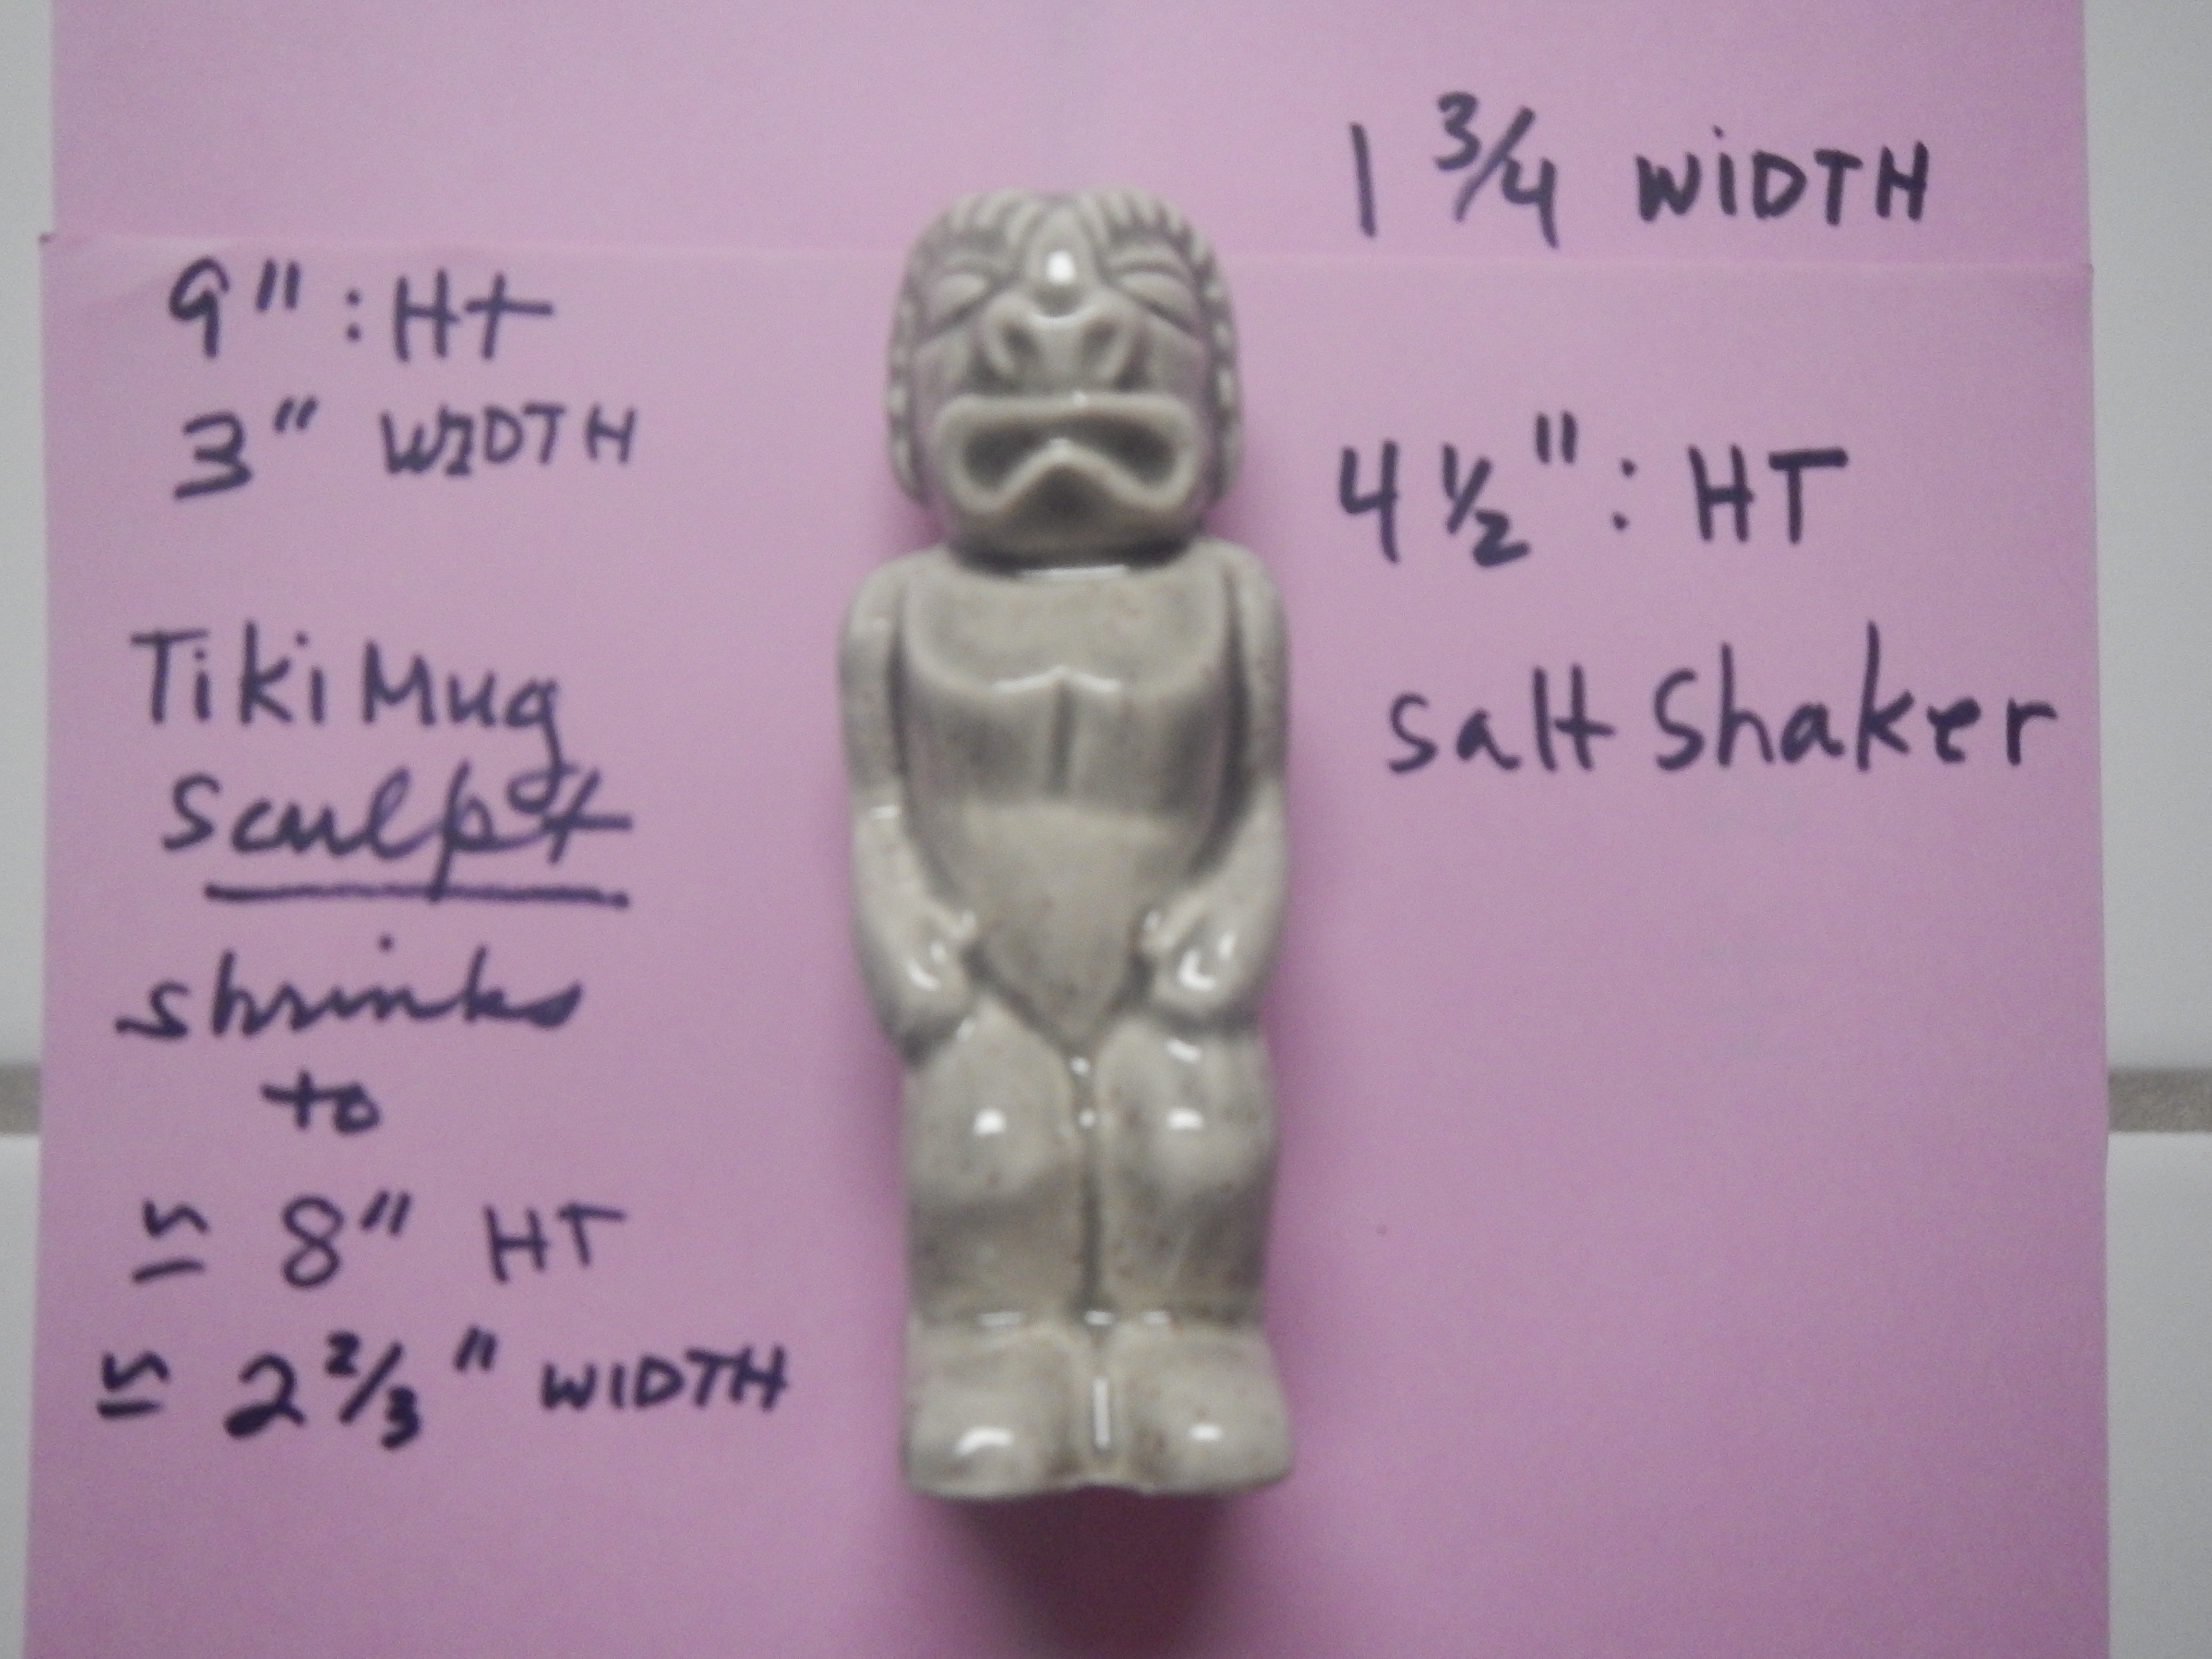 9" : Ht
3" WIDTH
Tiki Mug
Sculpt
shrinks
to
≈ 8" HT
≈ 2 2/3" WIDTH
1 3/4 WiDTH
4 1/2" : HT
Salt Shaker